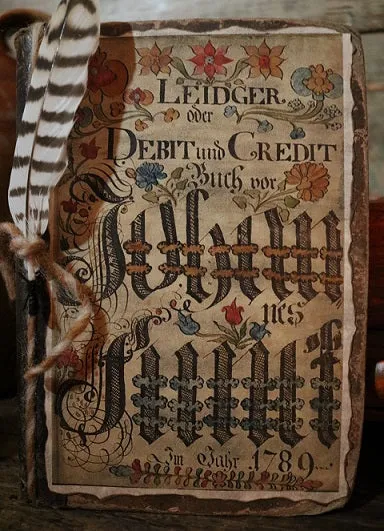 LEIDGER.
oder
DEBIT und CREDIT
Buch vor
Johan
nes
Im Jahr 1789...